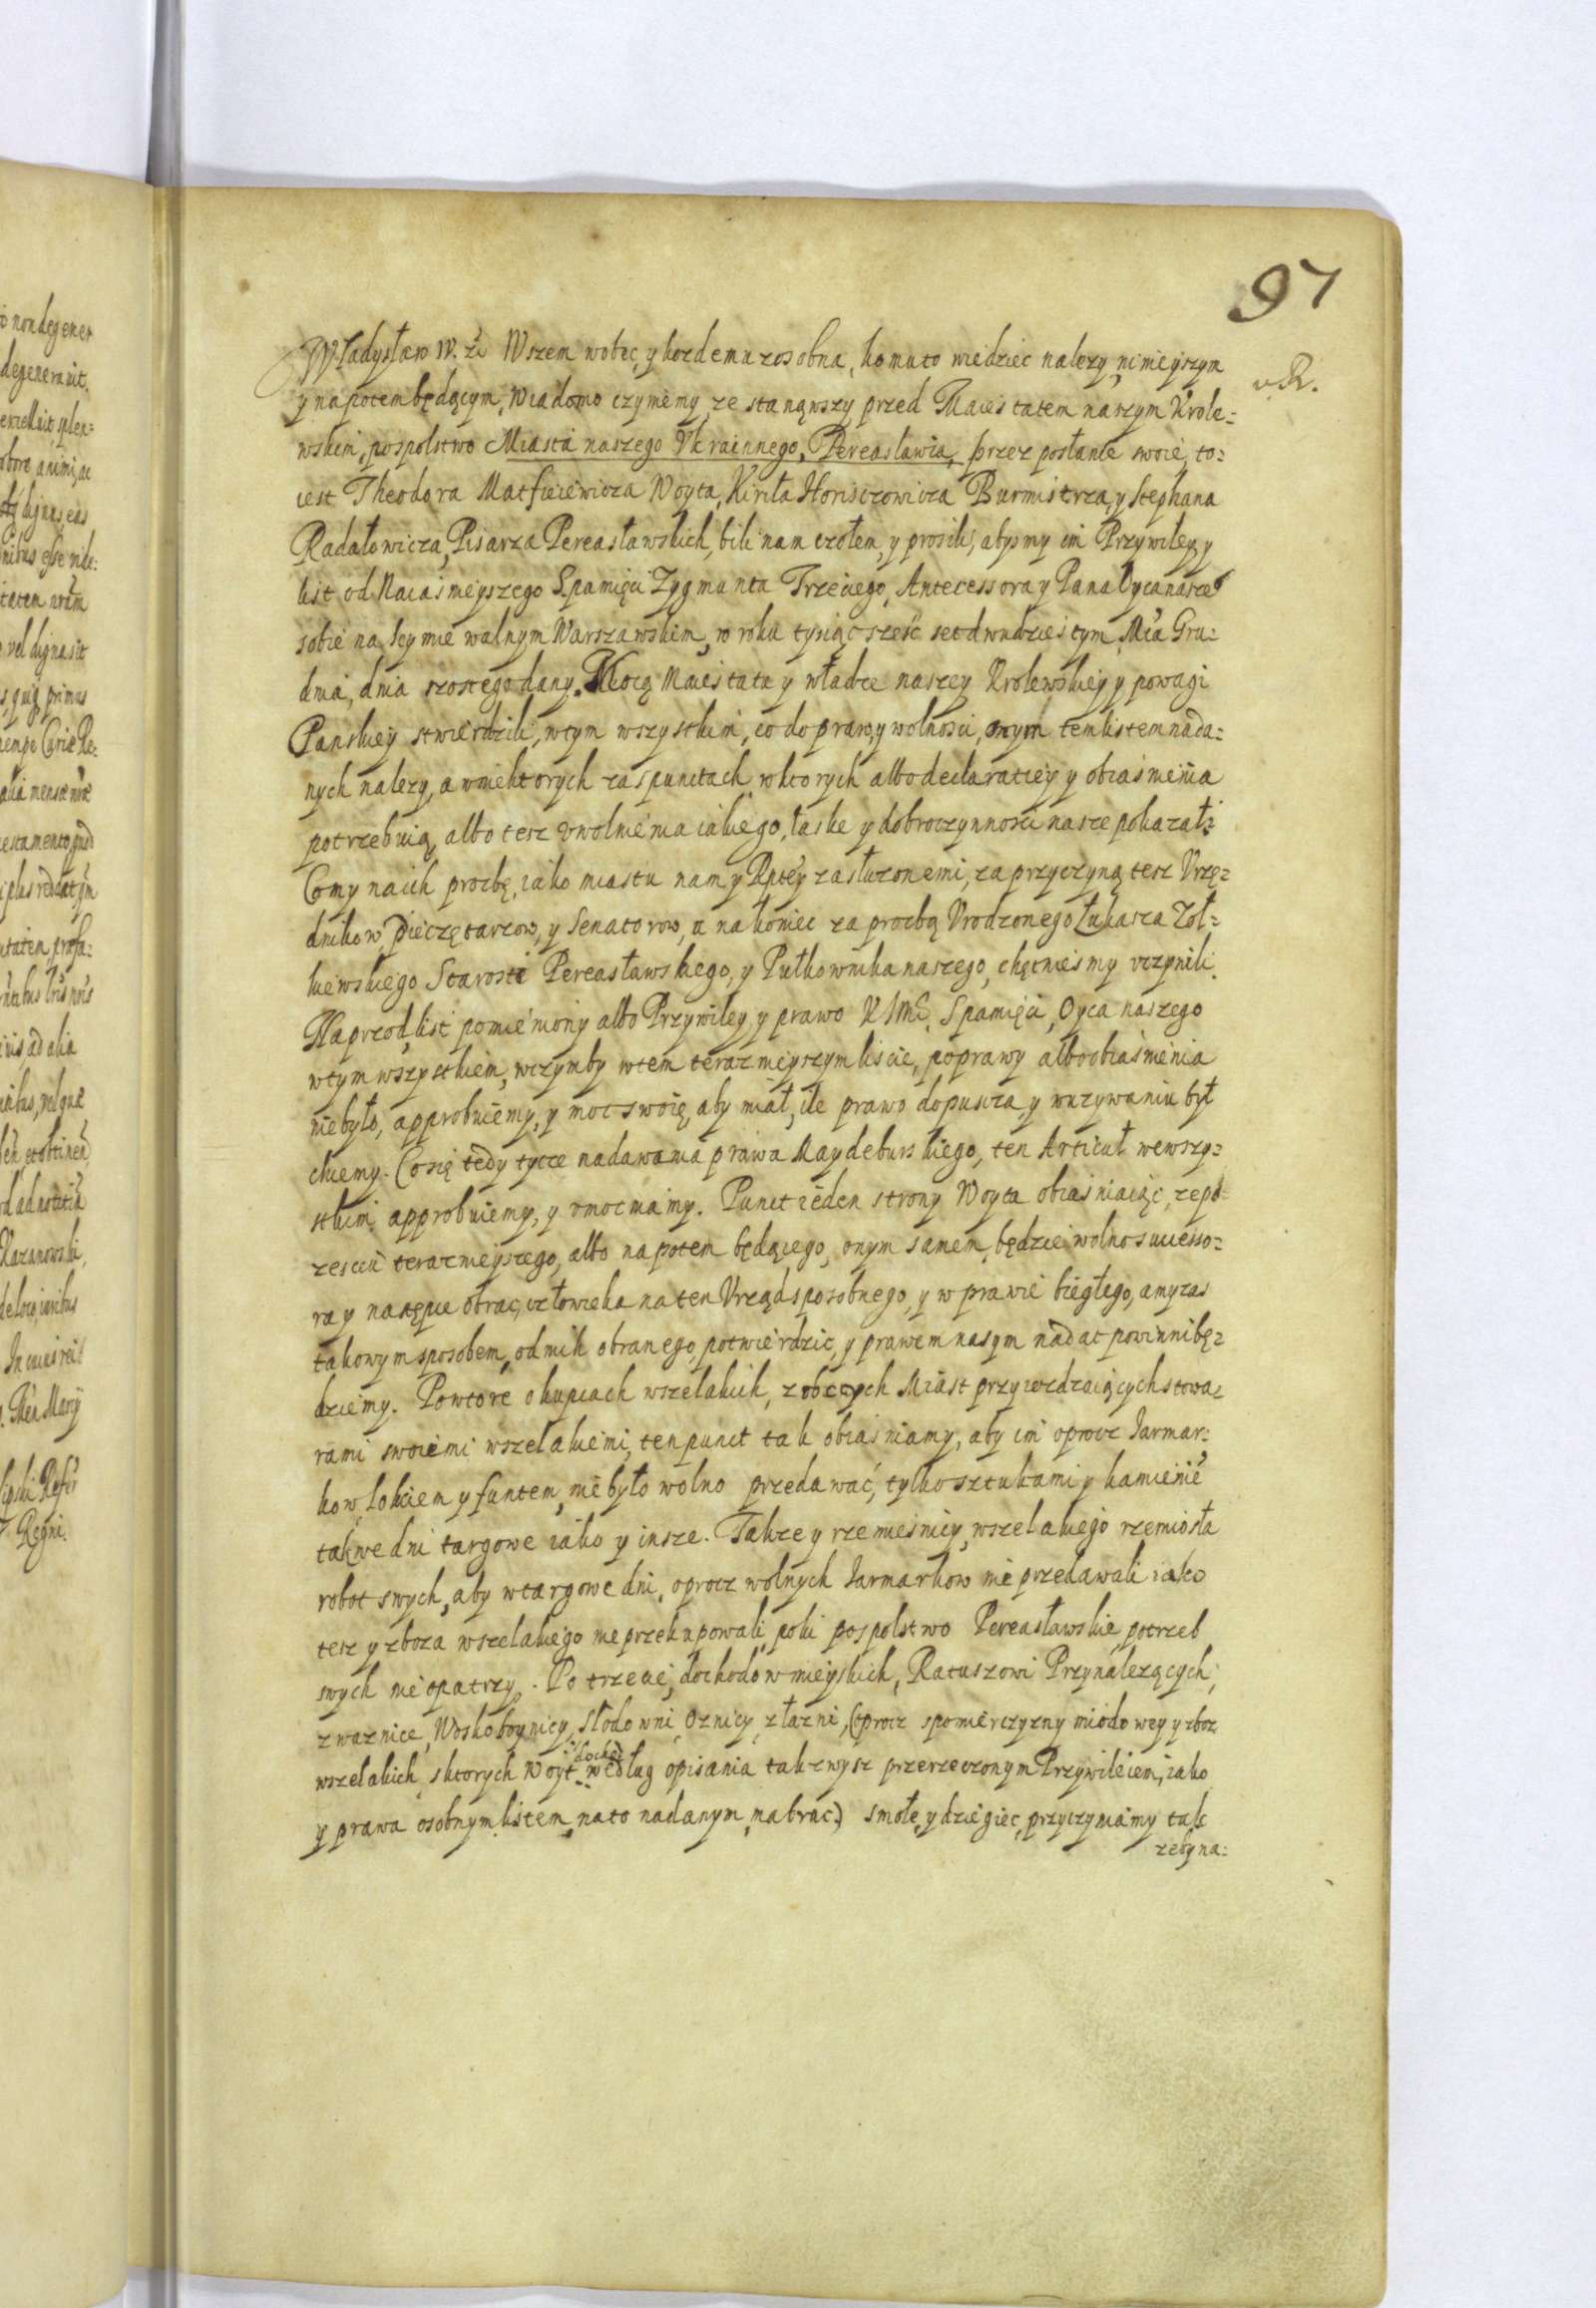 97
v. R.
Władysław IV. etc Wszem wobec, y kozdemu zosobna, komuto wiedziec nalezy, ninieyszym
y napotem będącym, Wiadomo czyniemy, ze stanąwszy przed Maiestatem naszym Krole-
wskim, pospolstwo Miasta naszego Vkrainnego, Pereasławia, przez posłance swoie, to-
iest Theodora Matfieiewicza Woyta, Kiriła Horisczowicza Burmistrza, y Stephana
Radałowicza, Pisarza Pereasławskich, bili nam czołem, y prosili, abysmy im Przywiley y
list od Naiasnieyszego S. pamięci Zygmunta Trzeciego, Antecessora y Pana Oyca nasze°
sobie na Seymie walnym Warszawskim, w roku tysiąc szesc set dwudziestym, Mca Gru-
dnia, dnia szostego dany. Mocą Maiestatu y władze naszey Krolewskiey y powagi
Panskiey stwierdzili, wtym wszystkim, co do praw, y wolnosci, onym tem listem nada-
nych nalezy, a wniektorych zas punctach, wktorych albo declaratiey y obiasnienia
potrzebuią, albo tesz vwolnienia iakiego, łaske y dobroczynnosci nasze pokazali
Comy na ich prozbę, iako miastu nam y Rptey zasłuzonemi, za przyczyną tesz Vrzę-
dnikow, Pieczętarzow, y Senatorow, a nakoniec za prozbą Vrodzonego Łukasza Zoł-
kiewskiego Starosti Pereasławskiego, y Pułkownika naszego, chętniesmy vczynili.
Naprzod, list pomieniony albo Przywiley y prawo KJMC, S pamięci, Oyca naszego
wtym wszystkiem, wczymby wtem teraznieyszym liscie, poprawy albo obiasnienia
niebyło, approbuiemy, y moc swoię, aby miał, ile prawo dopuszcza, y wuzywaniu był
chcemy. Co się tedy tycze nadawania prawa Maydeburskiego, ten Articuł wewszy-
stkim approbuiemy, y vmocniamy. Punct ieden strony Woyta obiasniaiąc, ze po
zesciu teraznieyszego, albo napotem będącego, onym samem, będzie wolno successo-
ra y następce obrac, człowieka na ten Vrząd sposobnego, y w prawie biegłego, a my zas
takowym sposobem, od nich obranego, potwierdzic, y prawem naszym nadac powinni bę-
dziemy. Powtore o kupcach wszelakich, z obczych Miast przyiezdzaiących stowa-
rami swoiemi wszelakiemi, ten punct tak obiasniamy, aby im oprocz Iarmar-
kow, łokciem y funtem, niebyło wolno przedawać, tylko sztukami y kamienie
tak we dni targowe iako y insze. Takze y rzemiesnicy, wszelakiego rzemiosła
robot swych, aby wtargowe dni, oprocz wolnych Iarmarkow nie przedawali iako
tesz y zboza wszelakiego nie przekupowali, poki pospolstwo Pereasławskie, potrzeb
swych nie opatrzy. Po trzecie, dochodow mieyskich, Ratuszowi Przynalezących,
z waznice, Woskoboynicy, Słodowni, Oznicy, z łazni, (oprocz spomierczyzny miodowey y zboz
wszelakich, sktorych Woyt dochod według opisania tak zwysz przerzeczonym Przywileiem, iako
y prawa osobnym listem, nato nadanym, ma brac.) smołe, y dziegiec, przyczyniamy tak
zeby na-